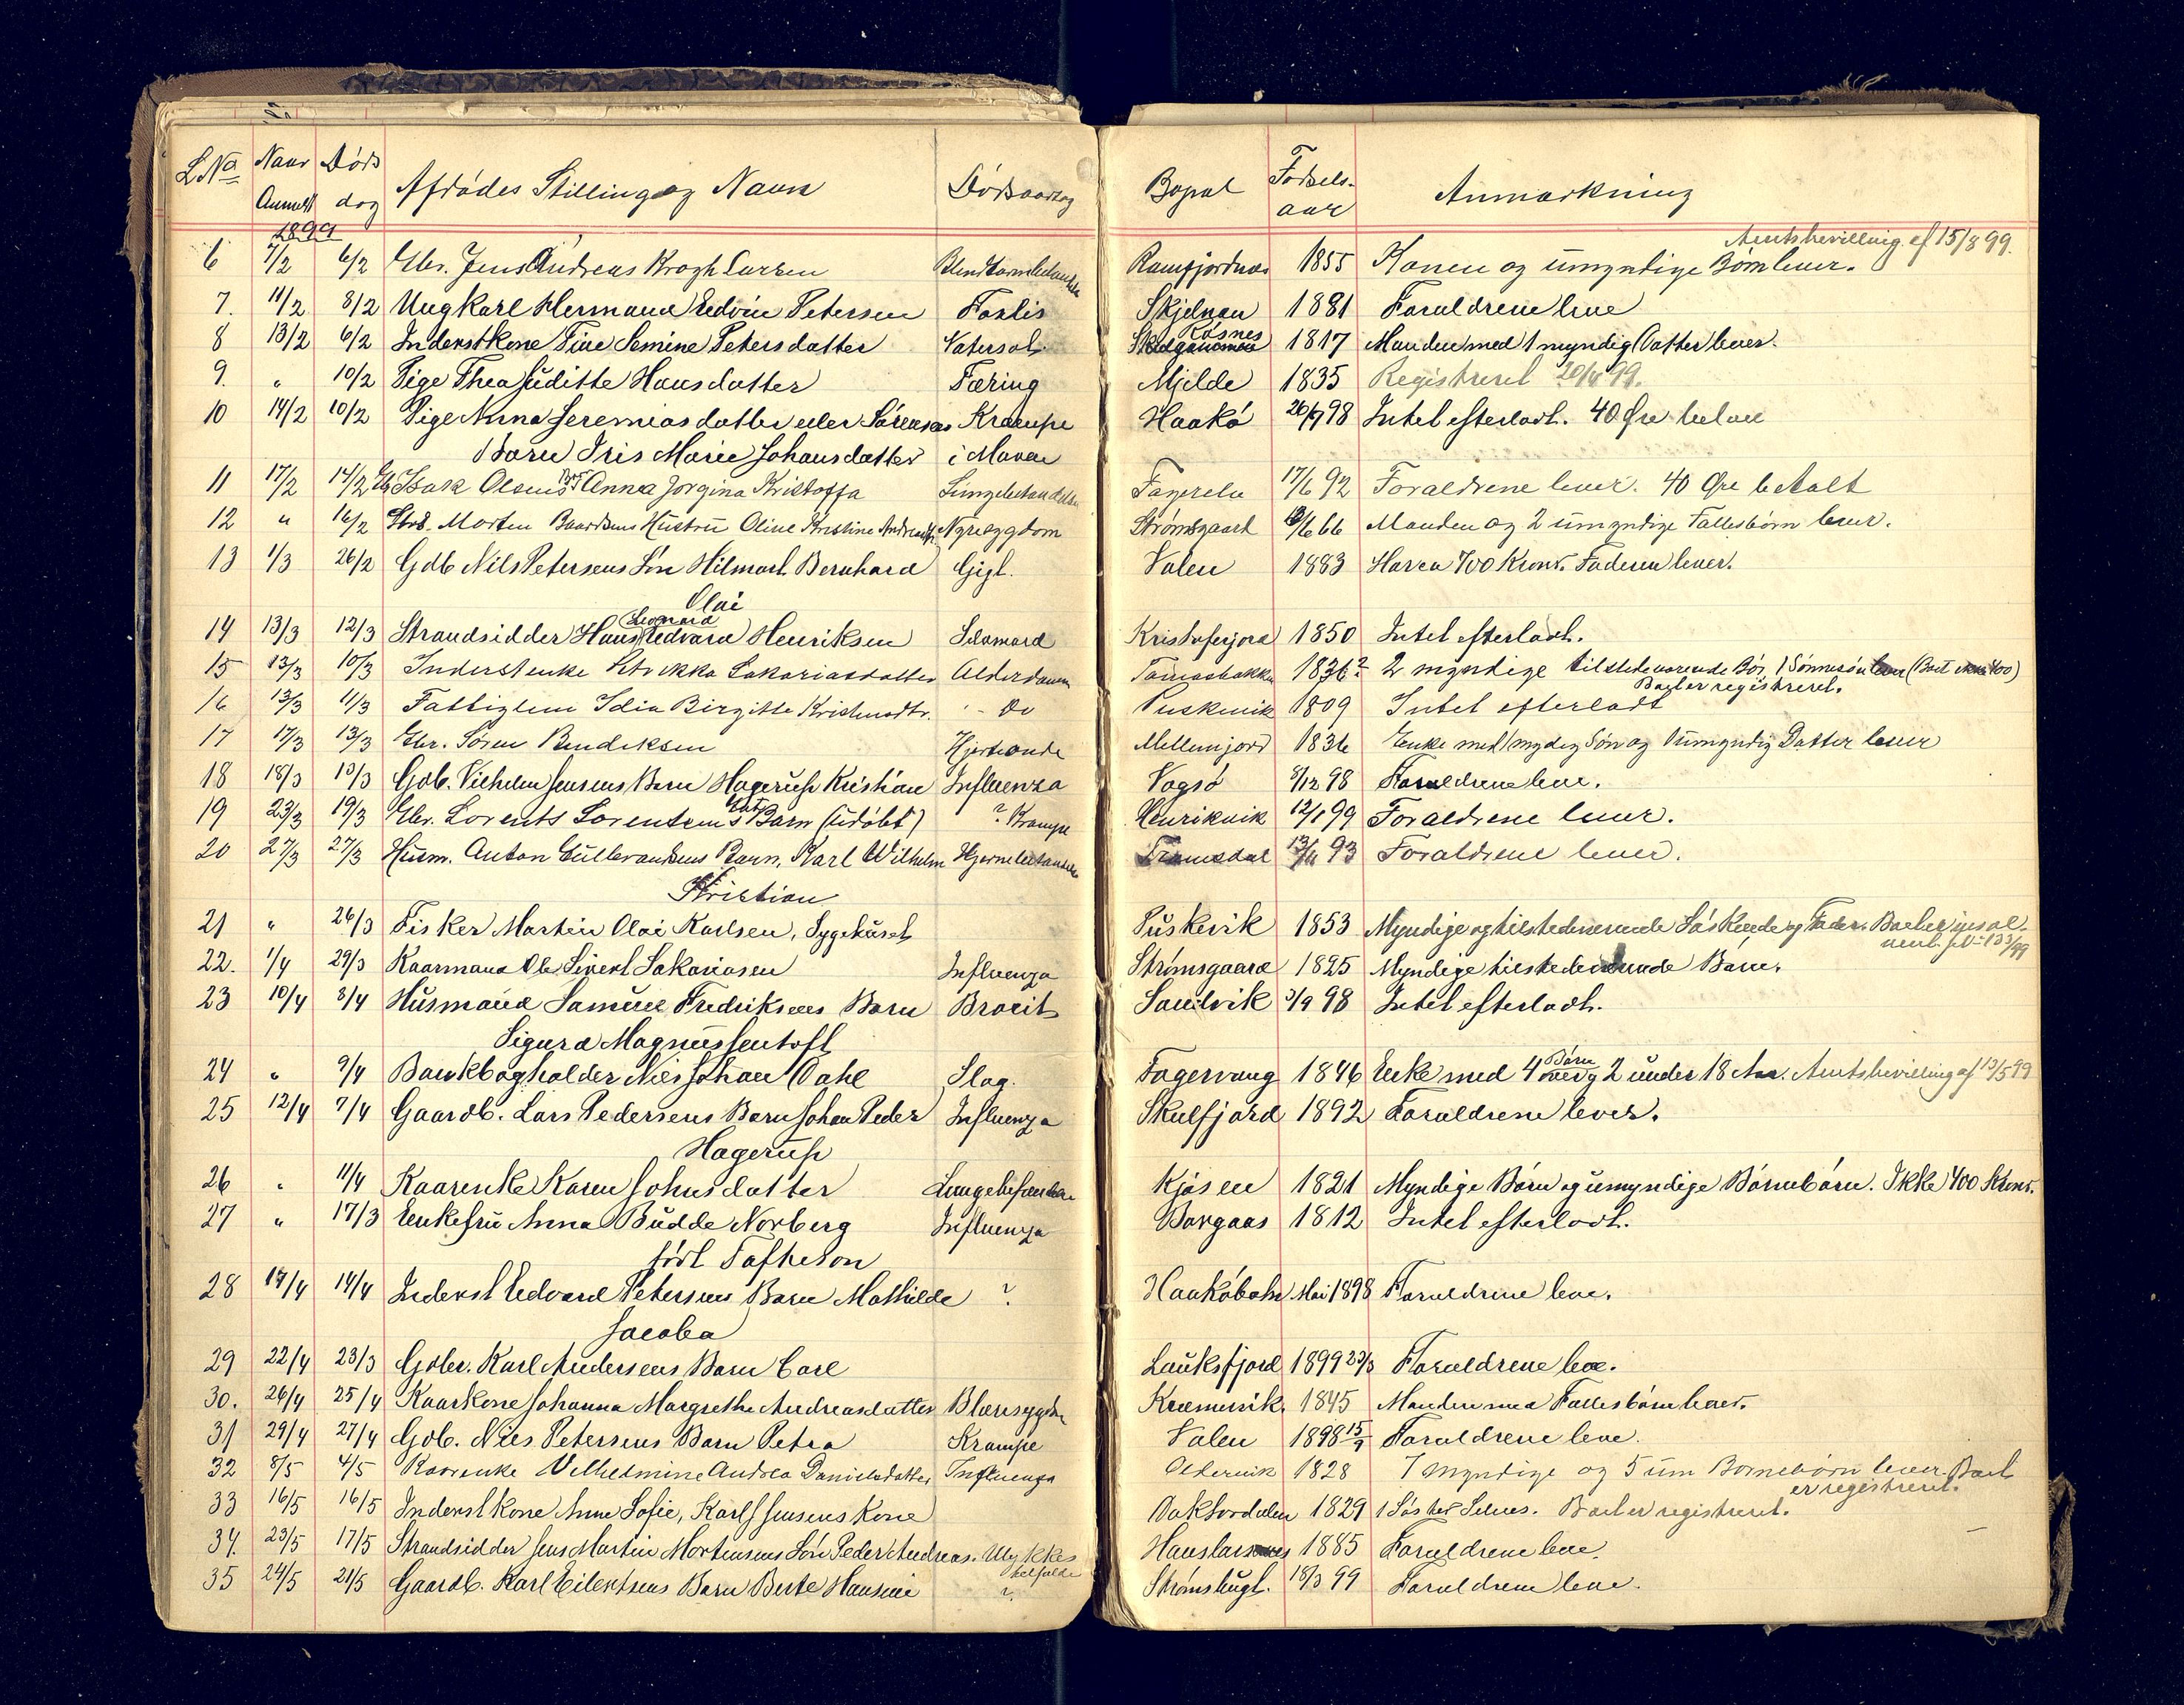 L No Naar Anmeldt Døds dag Afdødes Stilling og Navn Dødsaarsag Bopæl Fødsels-aar Anmærkning
1899
Amtsbevilling af 15/3 99.
6 7/2 6/2 Gbr. Jens Andreas Krogh Larsen Ramfjordnæs 1855 Konen og umyndige Børn lever.
7. 11/2 8/2 Ungkarl Hermann Edvin Petersen Skjelnan 1881 Forældrene leve
Røsnes
8 13/2 6/2 Inderstkone Tine Semine Petersdatter Vatersot 1817 Manden med 1 myndig Datter lever.
9. " 10/2 Pige Thea Juditte Hansdatter Tæring Mjelde 1835 Registreret 20/4 99.
10 14/2 10/2 Pige Anna Jeremiasdatter eller Sørensens Krampe Haakø 26/9 98 Intet efterladt. 40 Øre betalt
Barn Iris Marie Johansdatter i Maven
11 17/2 14/2 Gb Isak Olsens Brn Anna Jorgina Kristoffa Fagerelv 17/6 92 Forældrene lever. 40 Øre betalt
12 " 16/2 Strs. Morten Baardsens Hustru Oline Kristine Andreasdtr. Nyresygdom Strømsgaard 66 Manden og 2 umyndige Fællesbørn lever.
13 1/3 26/2 Gdb Nils Petersens Søn Hilmart Bernhard Gigt. Valen 1883 Har ca 700 Kroner. Faderen lever.
Olai
Leonard
14 13/3 12/3 Strandsidder Hans Edvard Henriksen Selvmord Kristoferjord 1850 Intet efterladt.
15 13/3 10/3 Inderstenke Sakariasdatter Alderdom Tomasbakken 1836? 2 myndige tilstedeværende Bør, 1 Sønnesøn lever (Boet ikke 400)
Boet er registreret.
16 13/3 11/3 Fattiglem Idia Birgitte Kristensdtr. - Do Puskevik 1809 Intet efterladt
17 17/3 13/3 Gbr. Søren Bendiksen Hjerteonde Mellemjord 1836 Enke med 1 myndig Søn og 1 umyndig Datter lever
18 18/3 13/3 Gdb. Vilhelm Jensens Barn Hagerup Kristian Influenza Vogsø 8/12 98 Forældrene leve.
19 23/3 19/3 Gbr. Lorents Lorentsens Barn (Udøbt) ? Krampe Henrikvik 12/1 99 Forældrene lever.
20 27/3 27/3 Husm. Anton Gulbrandsens Barn, Karl Wilhelm Hjernebetændelse Tromsdal 93 Forældrene lever.
Kristian
21 " 26/3 Fisker Martin Olai Karlsen, Sygehuset Puskevik 1853 Myndige og tilstedeværende Søskende og Fader. Boet er
22. 1/4 29/3 Kaarmand Ole Sivert Sakariasen Influenza Strømsgaard 1825 Myndige tilstedeværende Børn.
23 10/4 8/4 Husmand Samuel Fredriksens Barn Brocit Sandvik 1/9 98 Intet efterladt.
Sigurd Magnus Jentoft
24 " 9/4 Bankbogholder Nils Johan Dahl Slag. Fagervang 1846 Enke med 4 Børn hvorav 2 under 18 Aar. Amtsbevilling af 13/5 99
25 12/4 7/4 Gaardb. Lars Pedersens Barn Johan Peder Influenza Skulfjord 1892 Forældrene lever.
Hagerup
26 " 11/4 Kaarenke Karen Johnsdatter Lungebetændelse Kjøsen 1821 Myndige Børn og umyndige Børnebørn. Ikke 400 Kroner.
27 " 17/3 Enkefru Anna Budde Norberg Influenza Borgaas 1812 Intet efterladt.
født Tafteson
28 17/4 14/4 Inderst Edvard Petersens Barn Mathilde ? Haakøbotn Mai 1898 Forældrene leve.
Jacoba
29 22/4 23/3 Gdbr. Karl Andersens Barn Carl Lauksfjord 1899 23/3 Forældrene leve.
30. 26/4 25/4 Kaarkone Johanna Margrethe Andreasdatter Blæresygdom Kræmmervik 1845 Manden med Fællesbørn lever.
31 29/4 27/4 Gdb. Nils Petersens Barn Petra Krampe Valen 1898 15/9 Forældrene leve.
32 8/5 4/5 Kaarenke Vilhelmine Andrea Danielsdatter Influenza Oldervik 1828 7 myndige og 5 um Børnebørn lever. Boet
er registreret.
33 16/5 16/5 Inderstkone Anne Sofie, Karl Jensens Kone 1829 1 Søster Boet er registreret.
34. 23/5 17/5 Strandsidder Jens Martin Mortensens Søn Peder Andreas. Ulykkes
tilfælde Hanslarsnes 1885 Forældrene leve.
35 24/5 21/5 Gaardb. Karl Eilertsens Barn Berte Hansine ? Strømshugl. 18/3 99 Forældrene leve.